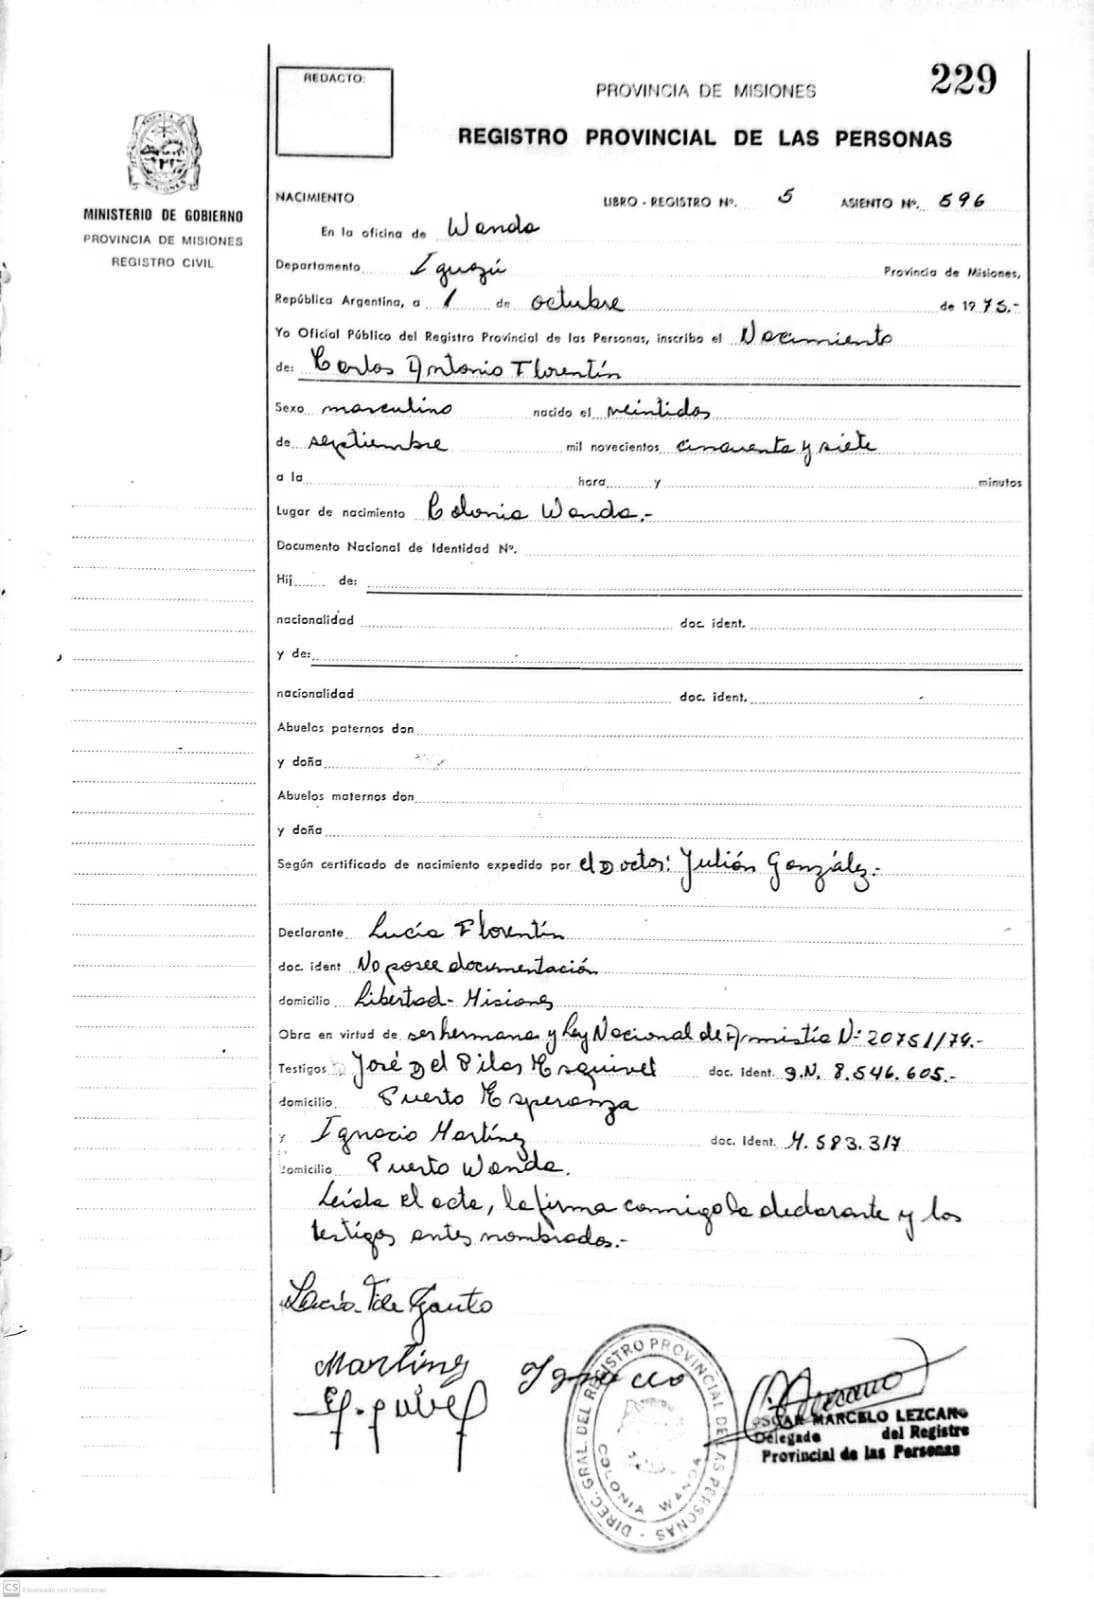 229
REDACTO:
PROVINCIA DE MISIONES
REGISTRO PROVINCIAL DE LAS PERSONAS
MINISTERIO DE GOBIERNO
PROVINCIA DE MISIONES
REGISTRO CIVIL
NACIMIENTO LIBRO - REGISTRO Nº. 5 ASIENTO Nº. 596
En la oficina de Wanda
Departamento Iguazú Provincia de Misiones,
República Argentina, a 1 de octubre de 1975.-
Yo Oficial Público del Registro Provincial de las Personas, inscribo el Nacimiento
de: Carlos Antonio Florentín
Sexo masculino nacido el veintidos
de septiembre mil novecientos cincuenta y siete
a la hora y minutos
Lugar de nacimiento Colonia Wanda.-
Documento Nacional de Identidad Nº.
Hij de:
nacionalidad doc. ident.
y de:
nacionalidad doc. ident.
Abuelos paternos don
y doña
Abuelos maternos don
y doña
Según certificado de nacimiento expedido por el Doctor: Julián González.-
Declarante Lucía Florentín
doc. ident No posee documentación
domicilio Libertad - Misiones
Obra en virtud de ser hermana y Ley Nacional de Amnistía Nº 20751/74.-
Testigos José Del Pilar Esquivel doc. ident. 8.546.605.-
domicilio Puerto Esperanza
y Ignacio Martínez doc. ident. M.583.317
domicilio Puerto Wanda.
Leída el acta, la firma conmigo la declarante y los
testigos antes nombrados.-
Lucía F de Gauto
Martinez Ignacio
Esquivel
DIREC. GRAL. DEL REGISTRO PROVINCIAL DE LAS PERSONAS
COLONIA WANDA
OSCAR MARCELO LEZCANO
Delegado del Registro
Provincial de las Personas
CS Escaneado con CamScanner